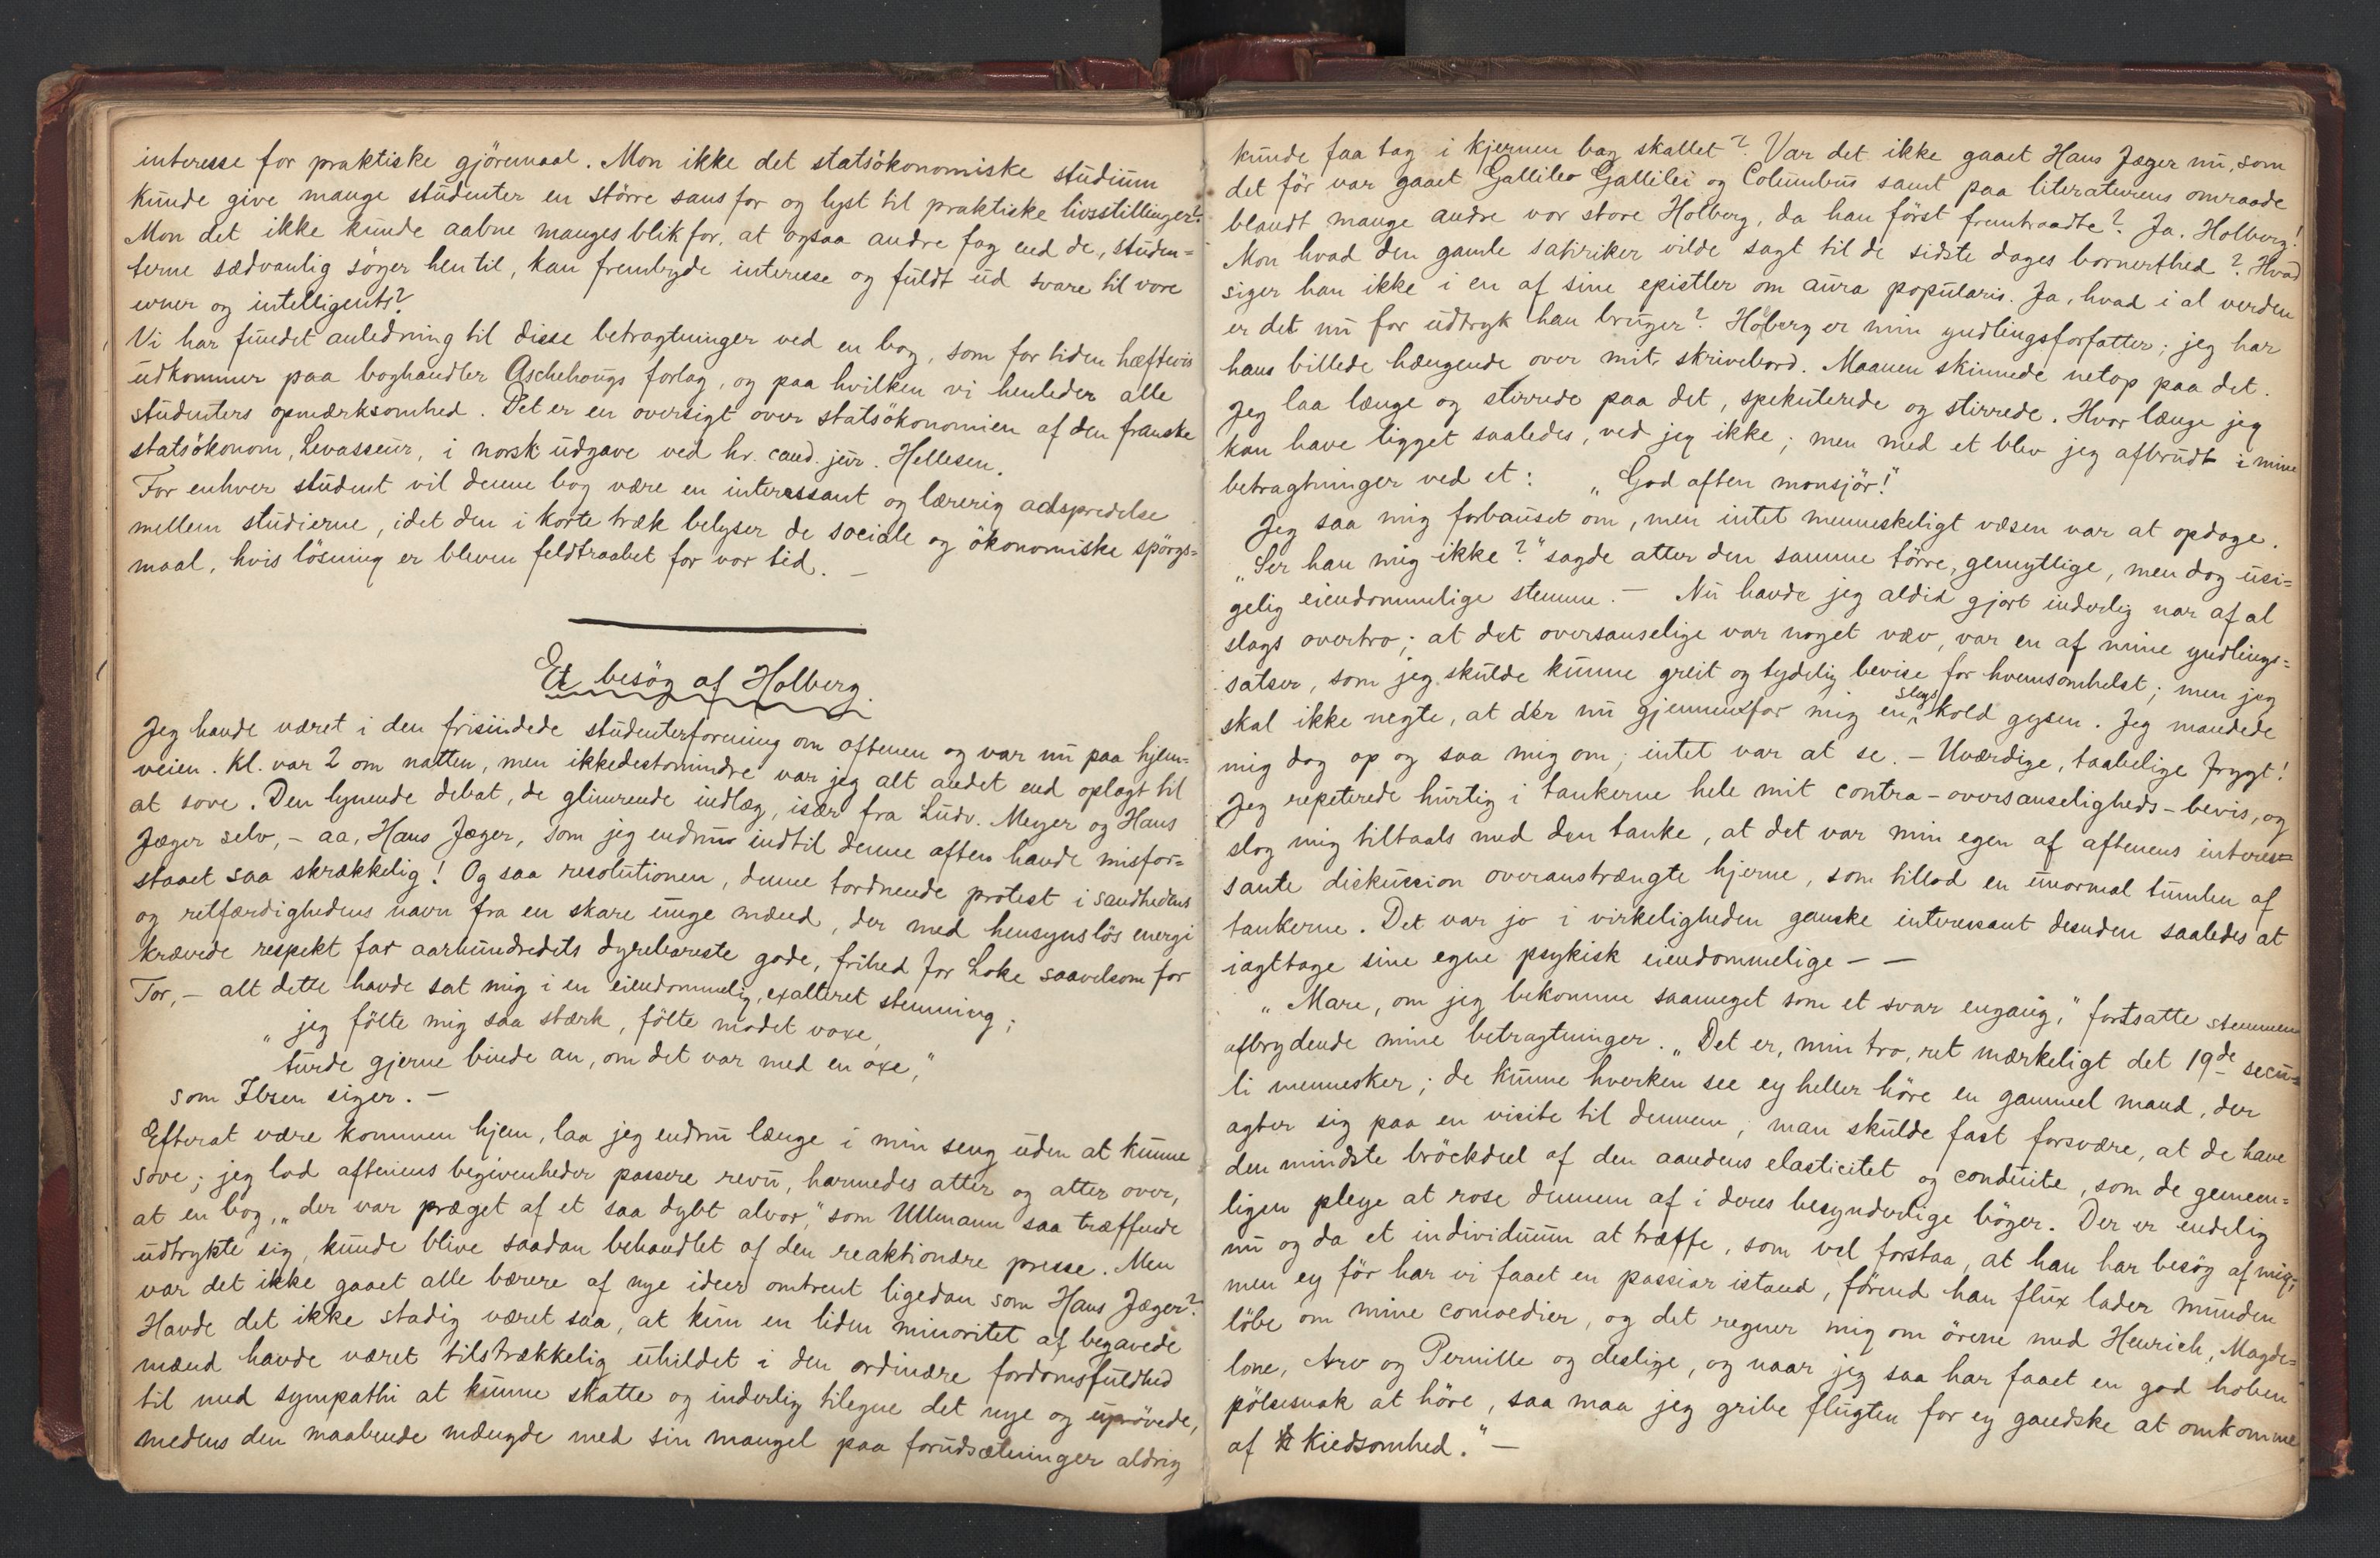 interesse for praktiske gjöremaal. Mon ikke det statsökonomiske studium
kunde give mange studenter en större sans for og lyst til praktiske livsstillinger?
Mon det ikke kunde aabne manges blik for, at ogsaa andre fag end de, studen=
terne sædvanlig söger hen til, kan frembyde interesse og fuldt ud svare til vore
evner og intelligents?
Vi har fundet anledning til disse betragtninger ved en bog, som for tiden hæftevis
udkommer paa boghandler Aschehougs forlag, og paa hvilken vi henleder alle
studenters opmærksomhed. Det er en oversigt over statsökonomien af den franske
statsökonom, Levasseur, i norsk udgave ved hr. cand. jur. Hellesen.
For enhver student vil denne bog være en interessant og lærerig adspredelse
mellem studierne, idet den i korte træk belyser de sociale og ökonomiske spörgs=
maal, hvis lösning er bleven feldtraabet for vor tid. —
Et besög af Holberg.
Jeg havde været i den frisindede studenterforening om aftenen og var nu paa hjem=
veien. Kl. var 2 om natten, men ikkedestomindre var jeg alt andet end oplagt til
at sove. Den lynende debat, de glimrende indlæg, især fra Ludv. Meyer og Hans
Jæger selv, – aa, Hans Jæger, som jeg endnu indtil denne aften havde misfor=
staaet saa skrækkelig! Og saa resolutionen, denne tordnende protest i sandhedens
og retfærdighedens navn fra en skare unge mænd, der med hensynslös energi
krævede respekt for aarhundredets dyrebareste gode, frihed for Loke saavelsom for
Tor, – alt dette havde sat mig i en eiendommelig, exalteret stemning;
„jeg fölte mig saa stærk, fölte modet voxe,
turde gjerne binde an, om det var med en oxe,"
som Ibsen siger. –
Efterat være kommen hjem, laa jeg endnu længe i min seng uden at kunne
sove; jeg lod aftenens begivenheder passere revu, harmedes atter og atter over,
at en bog, „der var præget af et saa dybt alvor," som Ullmann saa træffende
udtrykte sig, kunde blive saadan behandlet af den reaktionære presse. Men
var det ikke gaaet alle bærere af nye ideer omtrent ligedan som Hans Jæger?
Havde det ikke stadig været saa, at kun en liden minoritet af begavede
mænd havde været tilstrækkelig uhildet i den ordinære fordomsfuldhed
til med sympathi at kunne skatte og inderlig tilegne det nye og uprövede,
medens den maabende mængde med sin mangel paa forudsætninger aldrig
kunde faa tag i kjernen bag skallet? Var det ikke gaaet Hans Jæger nu, som
det för var gaaet Gallileo Gallilei og Columbus samt paa literaturens omraade
blandt mange andre vor store Holberg, da han först fremtraadte? Ja. Holberg!
Mon hvad den gamle satiriker vilde sagt til de sidste dages bornerthed? Hvad
siger han ikke i en af sine epistler om aura popularis. Ja, hvad i al verden
er det nu for udtryk han bruger? Holberg er min yndlingsforfatter; jeg har
hans billede hængende over mit skrivebord. Maanen skinnede netop paa det.
Jeg laa længe og stirrede paa det, spekulerede og stirrede. Hvor længe jeg
kan have ligget saaledes, ved jeg ikke; men med et blev jeg afbrudt i mine
betragtninger ved et: „God aften monsjör!"
Jeg saa mig forbauset om, men intet menneskeligt væsen var at opdage.
„Ser han mig ikke?" sagde atter den samme törre, gemytlige, men dog usi=
gelig eiendommelige stemme. – Nu havde jeg altid gjort inderlig nar af al
slags overtro; at det oversanselige var noget væv, var en af mine yndlings=
satser, som jeg skulde kunne greit og tydelig bevise for hvemsomhelst; men jeg
skal ikke negte, at der nu gjennemfor mig en slags kold gysen. Jeg mandede
mig dog op og saa mig om; intet var at se. – Uværdige, taabelige frygt!
Jeg repeterede hurtig i tankerne hele mit contra-oversanseligheds-bevis, og
slog mig tiltaals med den tanke, at det var min egen af aftenens interes=
sante diskussion overanstrængte hjerne, som tillod en unormal tumlen af
tankerne. Det var jo i virkeligheden ganske interessant desuden saaledes at
iagttage sine egne psykisk eiendommelige – –
„Mare, om jeg bekomme saameget som et svar engang," fortsatte stemmen
afbrydende mine betragtninger. „Det er, min tro, ret mærkeligt det 19de secu=
li mennesker; de kunne hverken see ey heller höre en gammel mand, der
agter sig paa en visite til dennem; man skulde fast forsvære, at de have
den mindste bröckdeel af den aandens elasticitet og conduite, som de gemeen=
ligen pleye at rose dennem af i deres besynderlige böger. Der er endelig
nu og da et individuum at træffe, som vel forstaa, at han har besög af mig;
men ey för har vi faaet en passiar istand, förend han flux lader munden
löbe om mine comoedier, og det regner mig om örene med Henrich, Magde=
lone, Arv og Pernille og deslige, og naar jeg saa har faaet en god hoben
pölsesnak at höre, saa maa jeg gribe flugten for ey gandske at omkomme
af Kiedsomhed." –